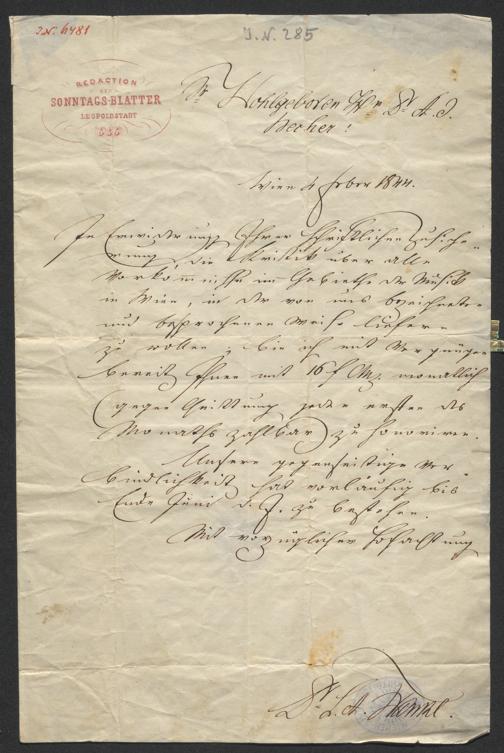 I.N. 6481
I.N. 285
REDACTION
DER
SONNTAGS-BLÄTTER
LEOPOLDSTADT
556
Sr Wohlgeboren Hrn Dr A. J.
Becher!
Wien 4 Feber 1844.
In Erwiederung Ihrer schriftlichen Zusiche-
rung, die Kritik über alle
Vorkommnisse im Gebiethe der Musik
in Wien, in der von uns bezeichneten
und besprochenen Weise liefern
zu wollen, bin ich mit Vergnügen
bereit Ihnen mit 16 f CM. monatlich
(gegen Quittung jeden ersten des
Monaths zahlbar) zu honoriren.
Unsere gegenseitige Ver-
bindlichkeit hat vorläufig bis
Ende Juni d. J. zu bestehen.
Mit vorzüglicher Hochachtung
Dr L. A. Frankl.